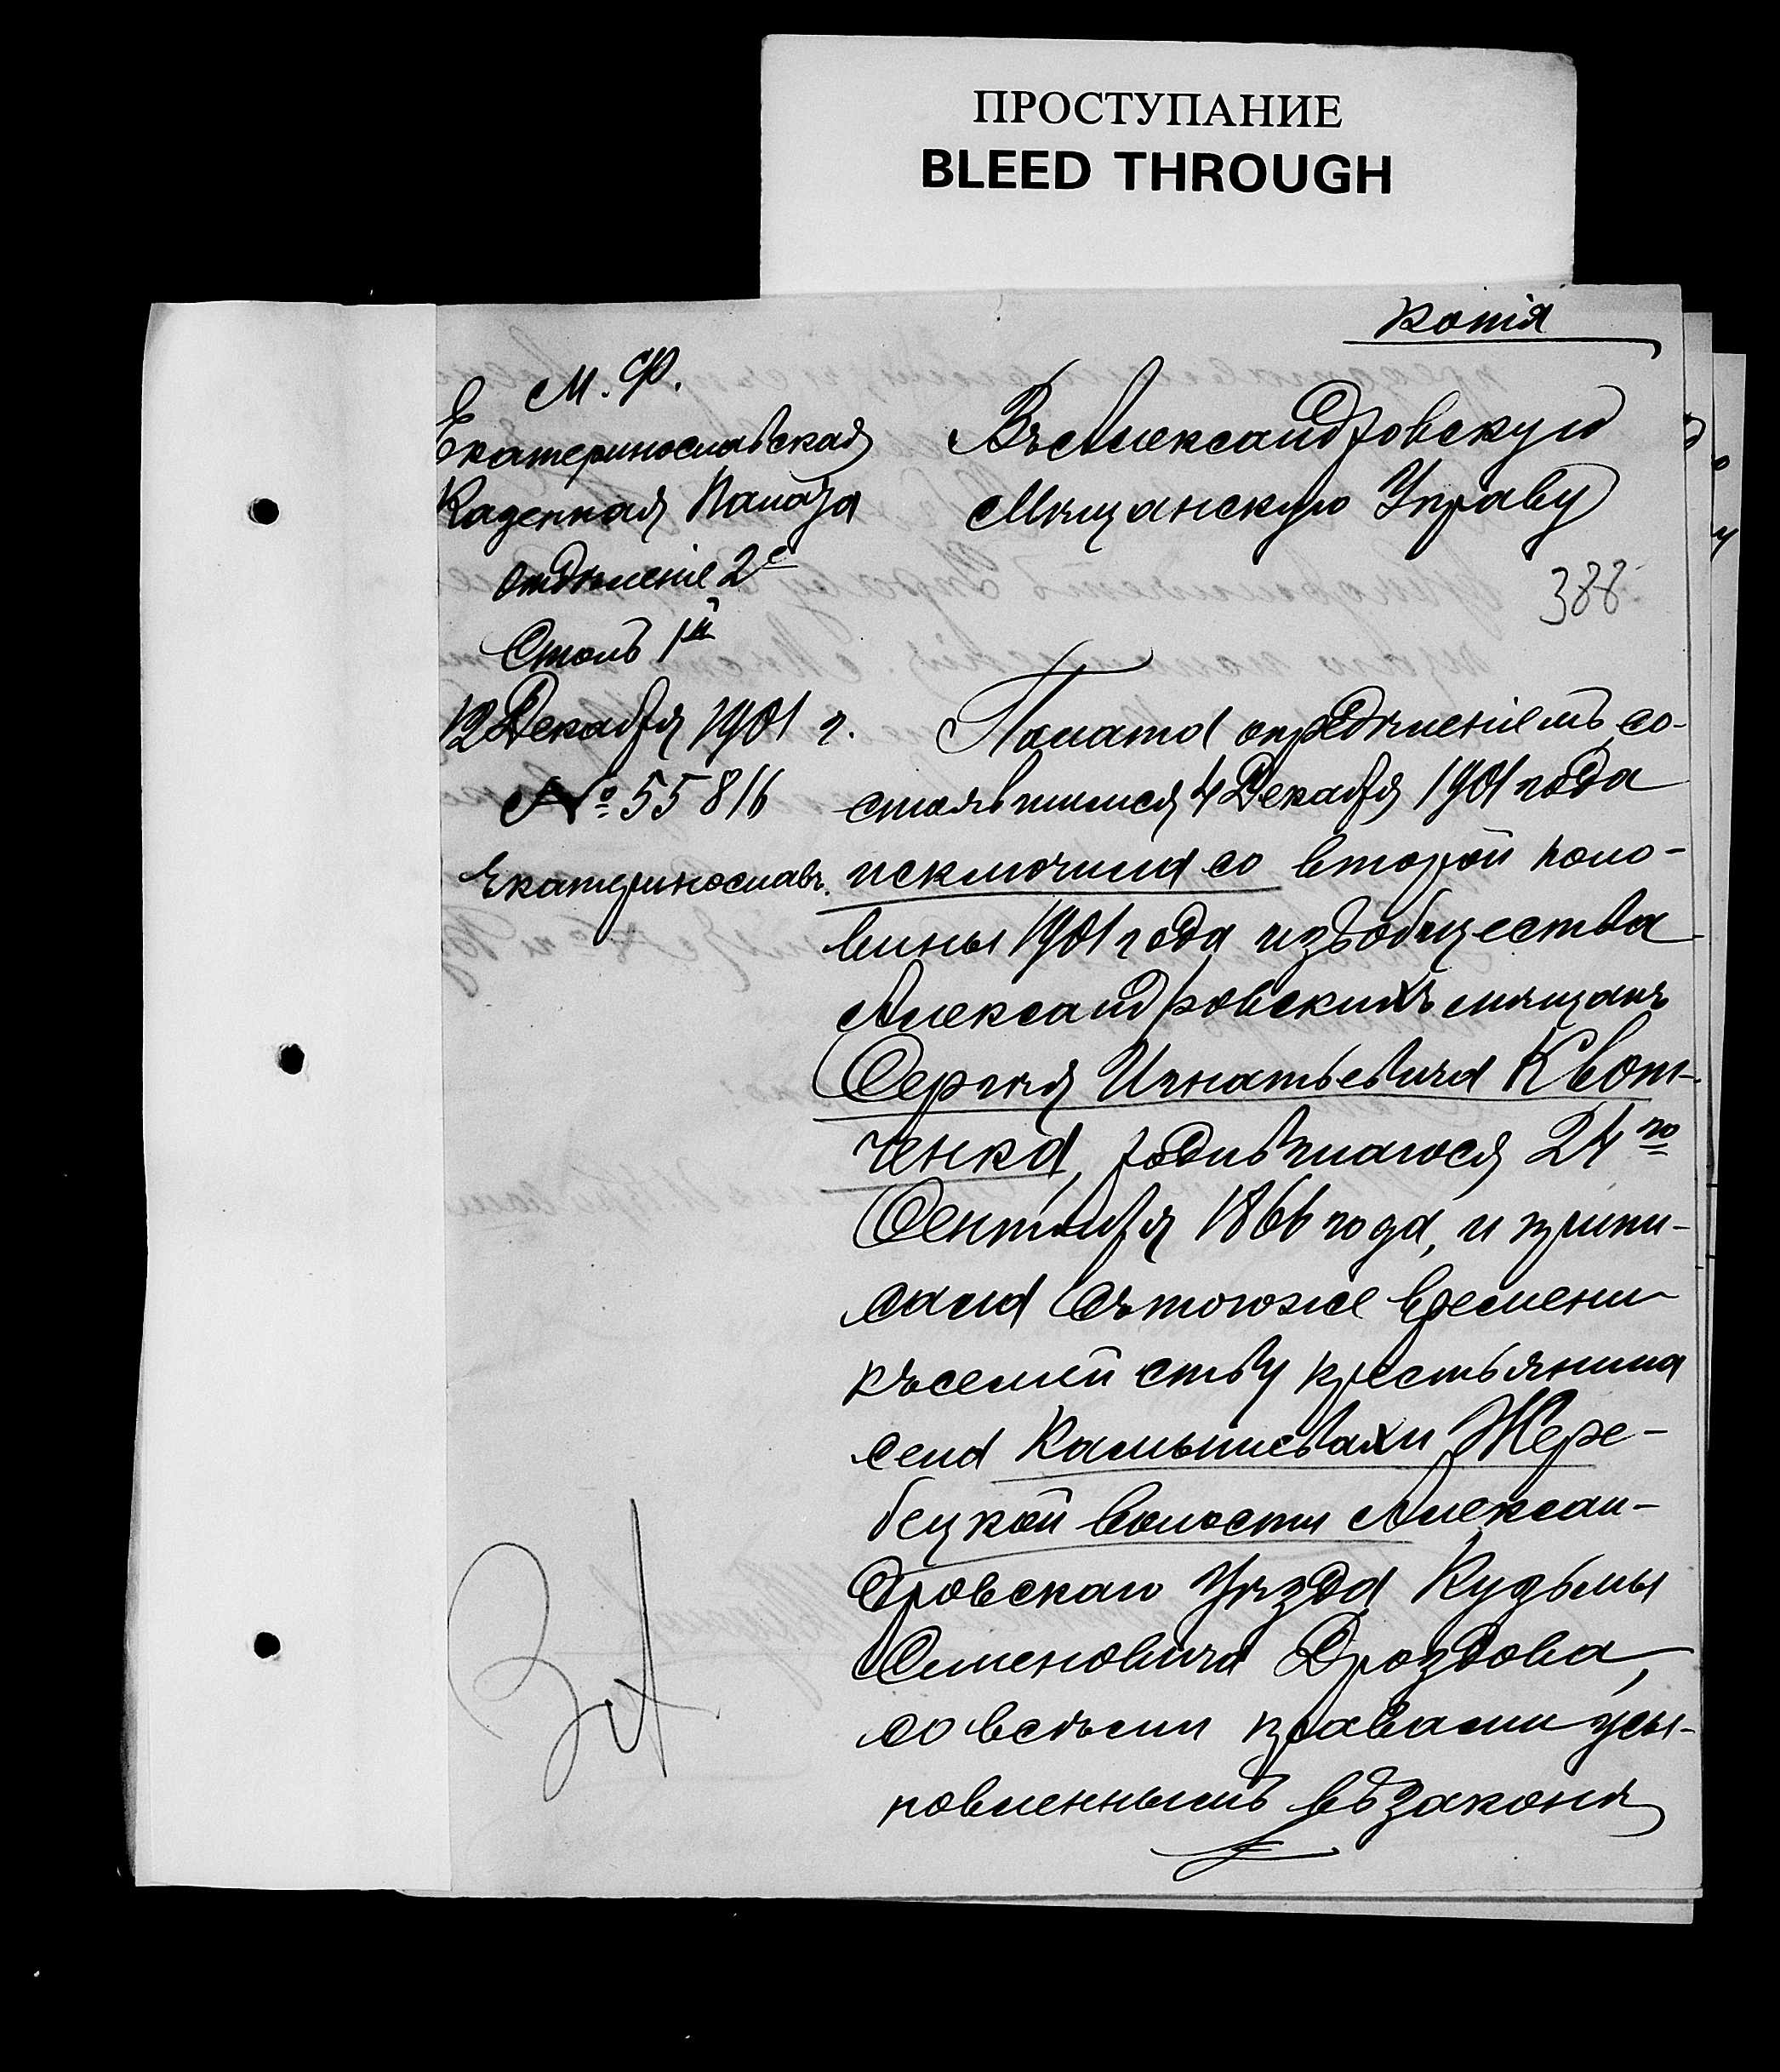 ПРОСТУПАНИЕ
BLEED THROUGH
Копія
М. Ф.
Екатеринославская
Казенная Палата
Отдѣленіе 2е
Столъ 1й
12 Декабря 1901 г.
№ 55816
Екатеринославъ.
Въ Александровскую
Мѣщанскую Управу
388
Палата опредѣленіемъ, со-
стоявшимся 4 Декабря 1901 года
исключила со второй поло-
вины 1901 года изъ общества
Александровскихъ мѣщанъ
Сергѣя Игнатьевича Квит-
ченка, родившагося 24го
Сентября 1866 года, и припи-
сала съ того же времени
къ семейству крестьянина
села Камышевахи Жере-
бецкой волости Алексан-
дровскаго уѣзда Кузьмы
Семеновича Дроздова,
со всѣми правами усы-
новленнымъ въ законѣ